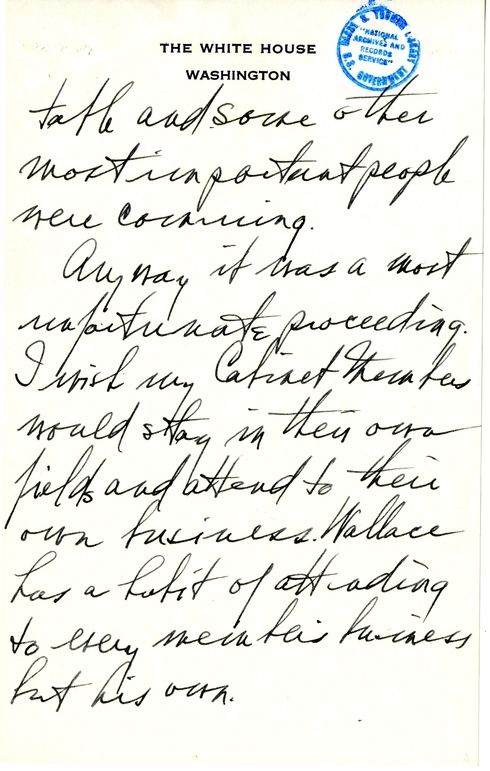 THE WHITE HOUSE
WASHINGTON
HARRY S. TRUMAN LIBRARY
"NATIONAL
ARCHIVES AND
RECORDS
SERVICE"
U.S. GOVERNMENT
table and some other
most important people
were comming.
Anyway it was a most
unfortunate proceeding.
I wish my Cabinet Members
would stay in their own
fields and attend to their
own business. Wallace
has a habit of attending
to every member's business
but his own.